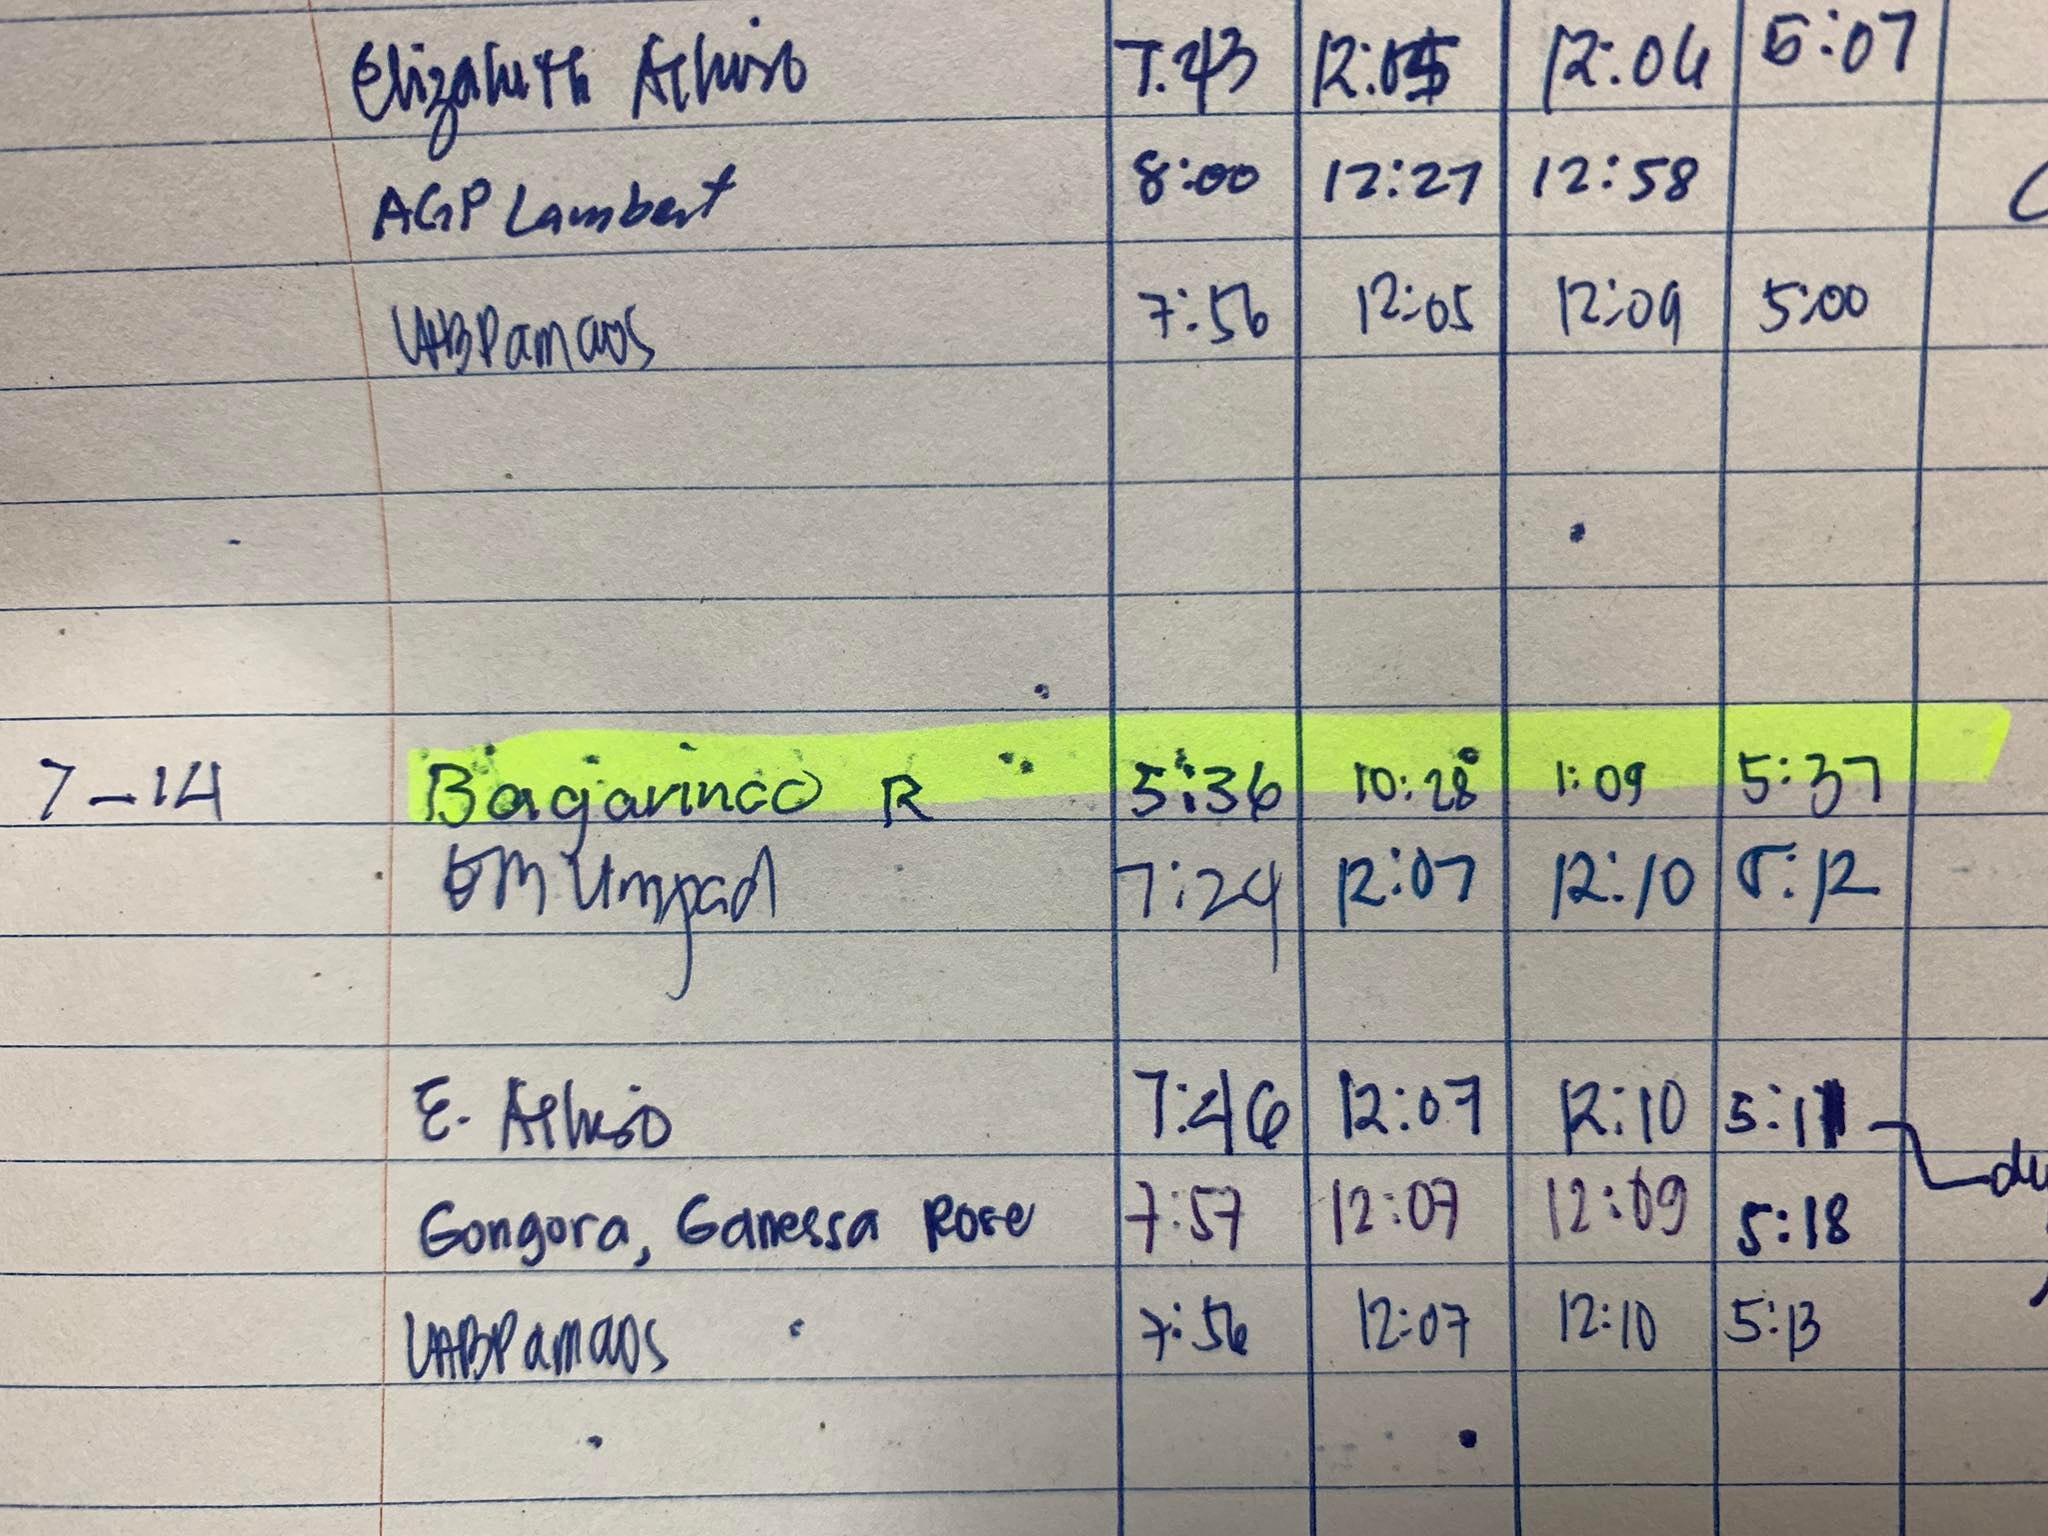 Elizabeth 7:43 12:05 12:06 5:07
AGP Lambert 8:00 12:27 12:58
7:56 12:05 12:09 5:00
7-14 Bagarinao R 5:36 10:28 1:09 5:37
Umpad 7:24 12:07 12:10 5:12
E. 7:46 12:07 12:10 5:11
Gongora, Ganessa Rose 7:57 12:07 12:09 5:18
7:56 12:07 12:10 5:13